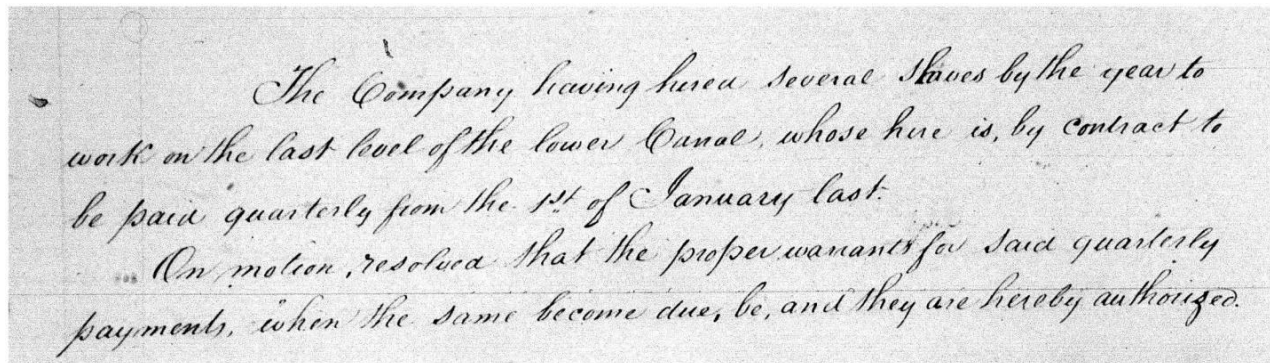 The Company having hired several slaves by the year to
work on the last level of the lower Canal, whose hire is, by contract to
be paid quarterly from the 1st of January last.
On motion, resolved that the proper warrants for said quarterly
payments, when the same become due, be, and they are hereby authorized.